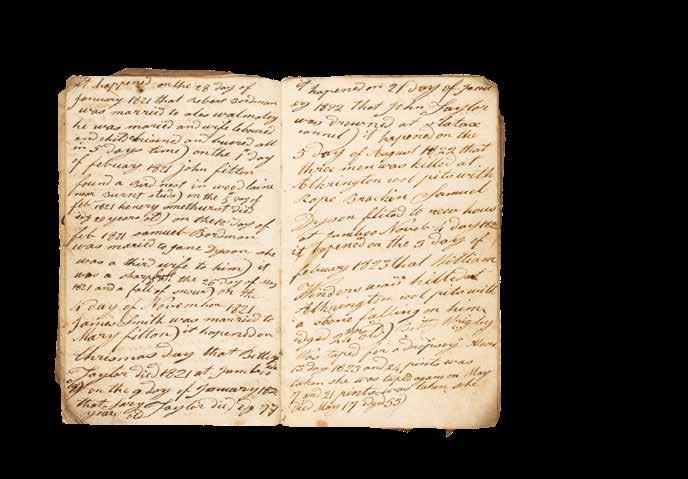 it happened on the 28 day of
January 1821 that Robert Bordman
was married to ales walmsley
he was maried and wife leboured
and child cirisned and buered all
in 5 days time) on the 1st day
of febuary 1821 John fitton
found a Bord nest in wood laine
near Burns studs) on the 5 day of
feb 1821 henery smethurst died
eig 20 years old) on the 12 day of
feb 1821 samuel Bordman
was maried to Jane Dyson she
was a third wife to him) it
was a sharp frost the 26 day of May
1821 and a fall of snow) on the
1 day of November 1821
James Smith was married to
Mary fitton) it hapened on
Chrismas day that Betty
Taylor died 1821 at Jumbo
on the 9 day of January 1822
that Taylor died eig 77
years old
it hapened on 21 day of Janu
ry 1822 that John Taylor
was drowned at Slatax
connel) it hapened on the
5 day of August 1822 that
three men was killed at
Alkrington cool pits with
Rope Brackin Samuel
Dyson flited to new hous
at Jumbo Noveb 4 day 1822
it hapened on the 5 day of
febuary 1823 that William
Winders was killed at
Alkrington cool pits with
a stone falling on him
adged 24 years old) Wrigley
Was taped for a dropsey
15 day 1823 and 24 pints was
taken she was taped agane on May
7 and 21 pints was taken she
Died May 17 Edged 55)